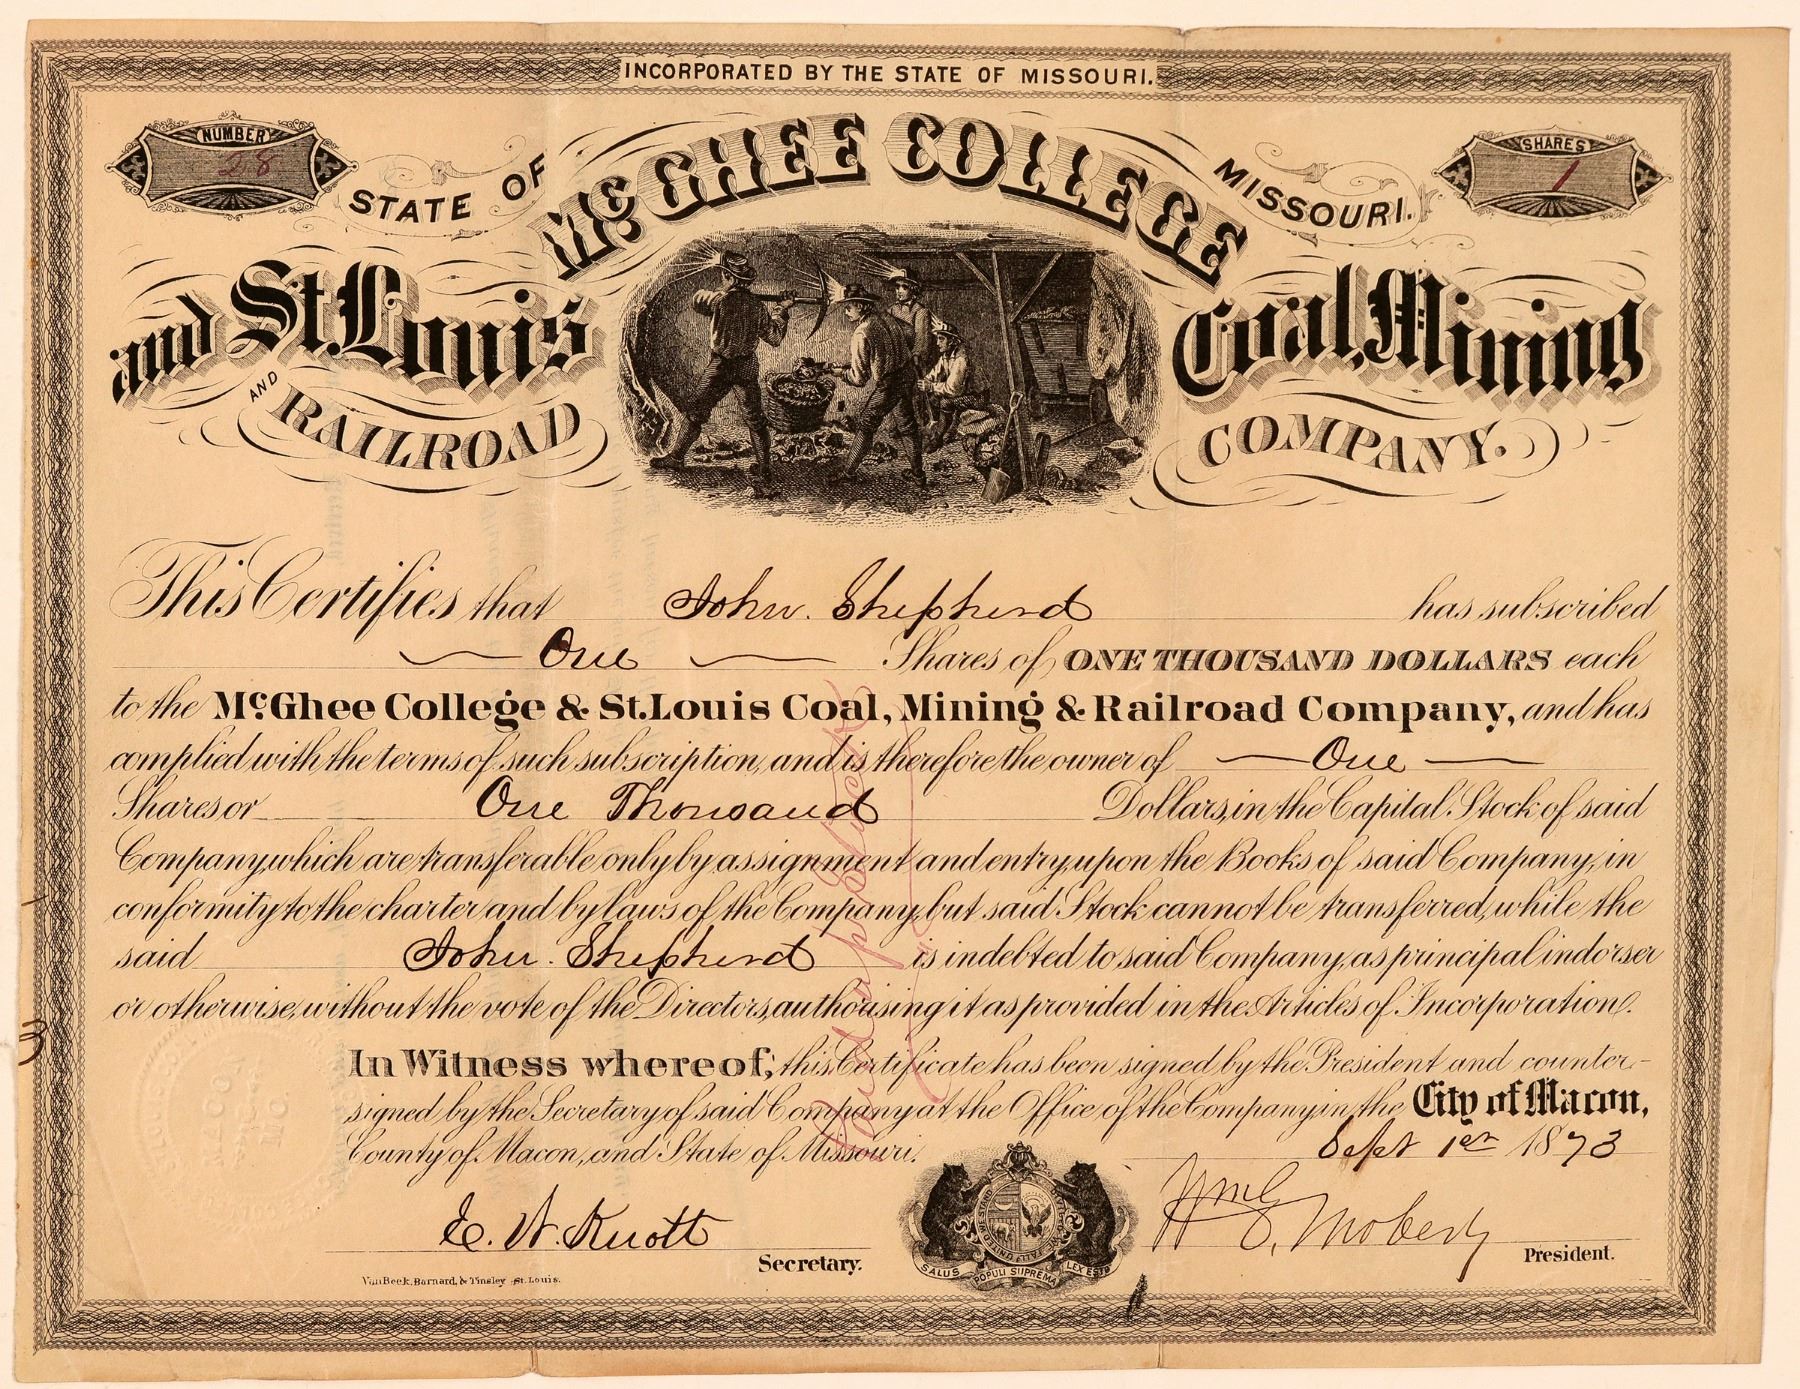 INCORPORATED BY THE STATE OF MISSOURI.
NUMBER
28
SHARES
1
STATE OF MISSOURI.
McGHEE COLLEGE
and St. Louis Coal, Mining
AND RAILROAD COMPANY.
This Certifies that John. Shepherd has subscribed
One Shares of ONE THOUSAND DOLLARS each
to the McGhee College & St. Louis Coal, Mining & Railroad Company, and has
complied with the terms of such subscription, and is therefore the owner of One
Shares or One Thousand Dollars, in the Capital Stock of said
Company, which are transferable only by assignment and entry, upon the Books of said Company, in
conformity to the charter and by laws of the Company, but said Stock cannot be transferred, while the
said John. Shepherd is indebted to said Company, as principal indorser
or otherwise, without the vote of the Directors, authorising it as provided in the Articles of Incorporation.
In Witness whereof, this Certificate has been signed by the President and counter-
signed by the Secretary of said Company at the Office of the Company, in the City of Macon,
County of Macon, and State of Missouri.
Sept 1er 1873
E. W. Knott
Secretary.
Wm E. Moberly
President.
SALUS POPULI SUPREMA LEX ESTO
VanBeek, Barnard, & Tinsley St. Louis.